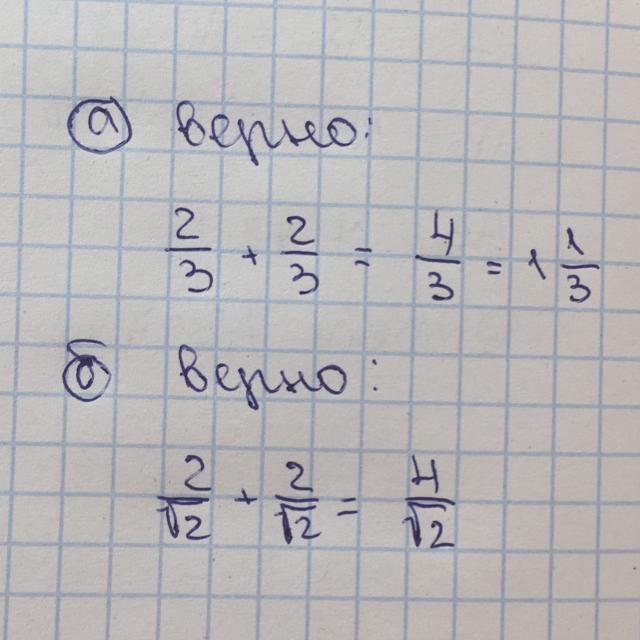 а верно:
2/3 + 2/3 = 4/3 = 1 1/3
б верно:
2/√2 + 2/√2 = 4/√2